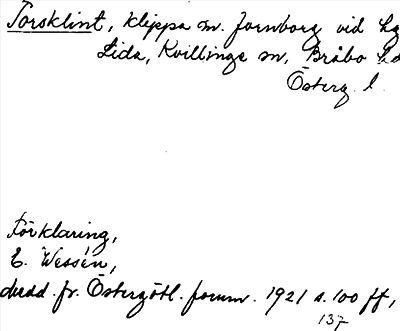 Torsklint, klippa m. fornborg vid Lg
Lida, Kvillinge sn, Bråbo hd
Österg. l.
Förklaring,
E. Wessén,
Medd. fr. Östergötl. fornm. 1921 s. 100 ff,
137